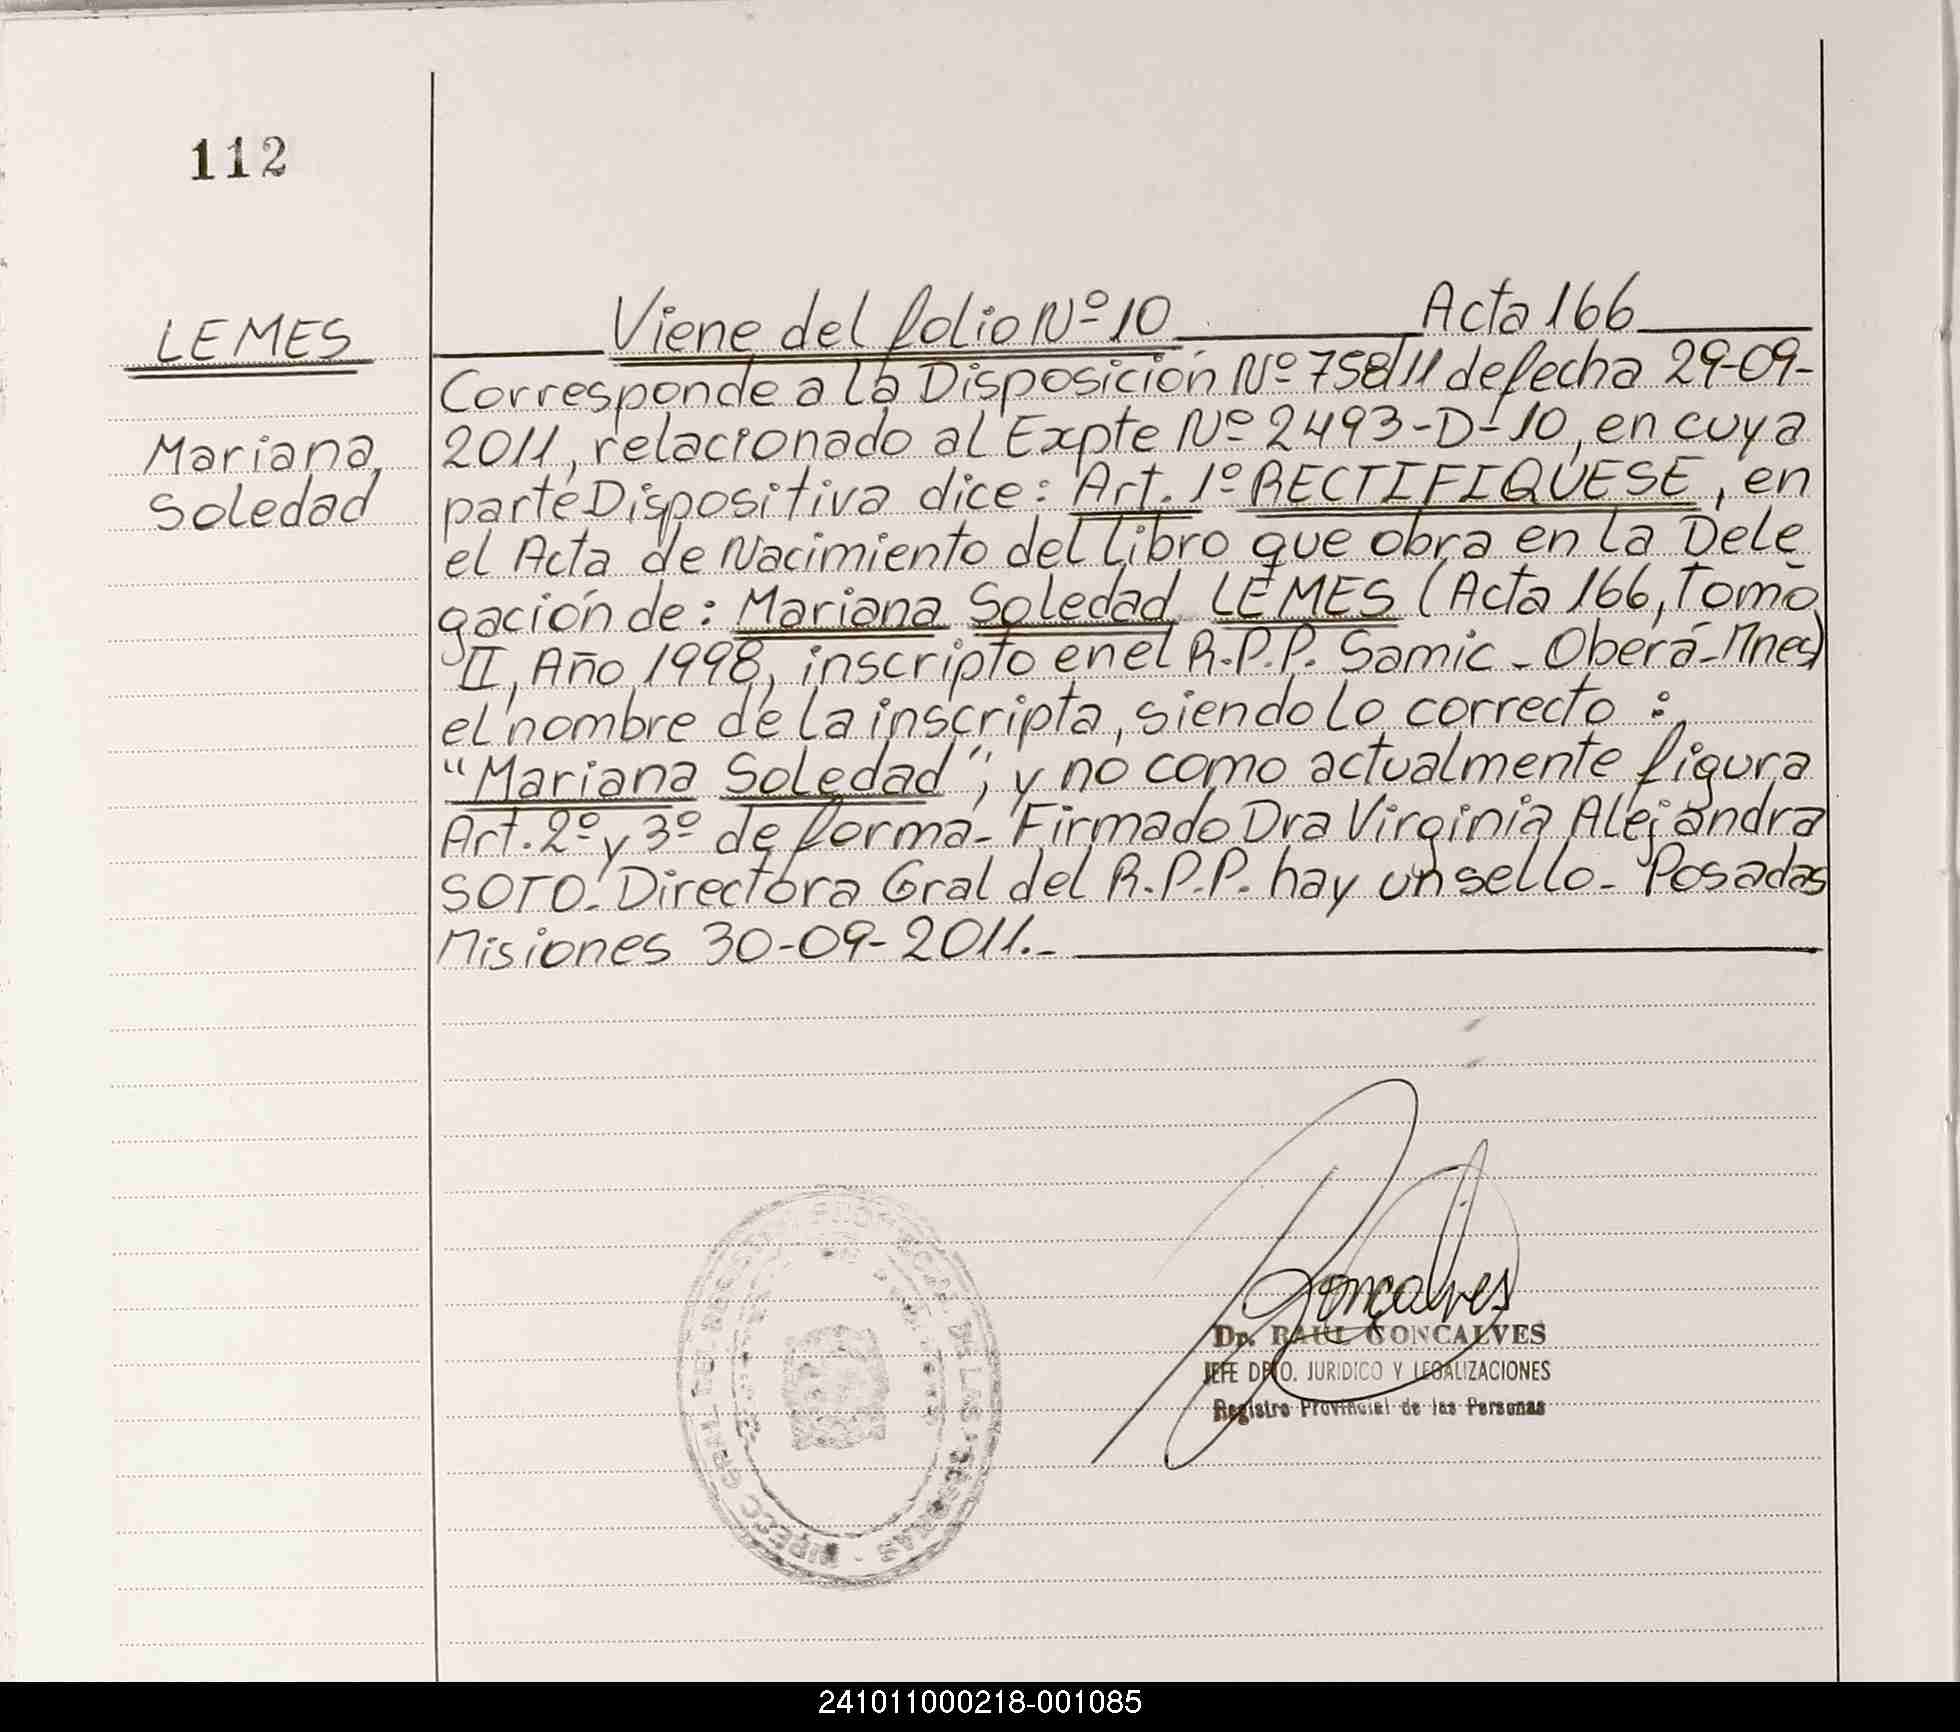 112
LEMES
Mariana
Soledad
Viene del folio Nº 10 Acta 166
Corresponde a la Disposición Nº 758/11 de fecha 29-09-
2011, relacionado al Expte Nº 2493-D-10, en cuya
parte Dispositiva dice: Art. 1º RECTIFIQUESE, en
el Acta de Nacimiento del libro que obra en la Dele
gación de: Mariana Soledad LEMES (Acta 166, Tomo
II, Año 1998, inscripto en el R.P.P. Samic - Oberá - Mnes)
el nombre de la inscripta, siendo lo correcto :
"Mariana Soledad", y no como actualmente figura
Art. 2º y 3º de forma- Firmado Dra Virginia Alejandra
SOTO- Directora Gral del R.P.P. hay un sello- Posadas
Misiones 30-09-2011.-
Goncalves
Dr. RAUL GONCALVES
JEFE DPTO. JURIDICO Y LEGALIZACIONES
Registro Provincial de las Personas
DE LAS PERSONAS
241011000218-001085